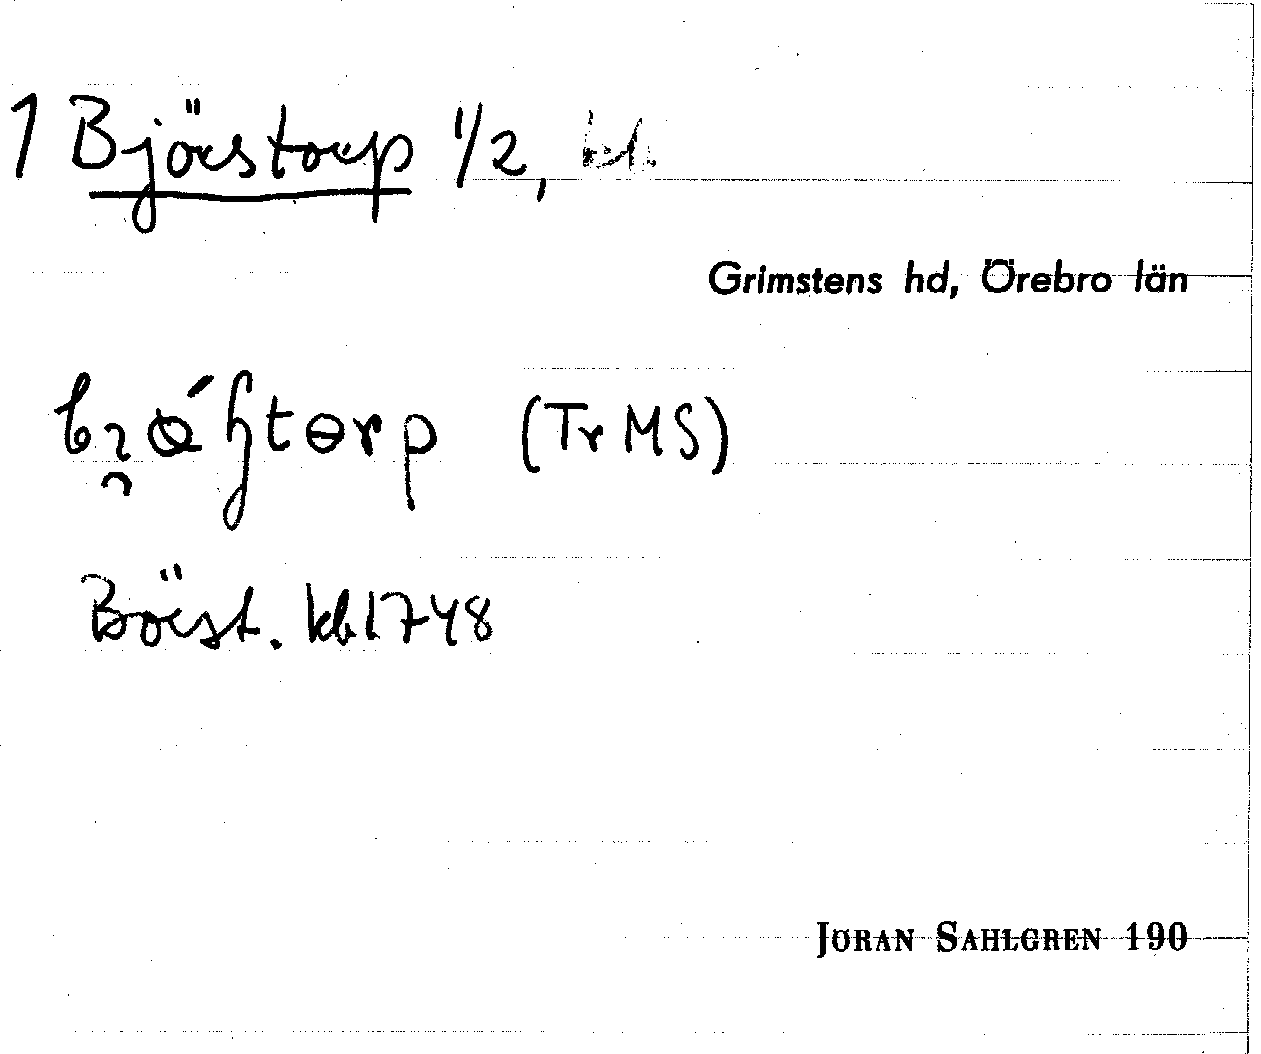 1 Björstorp 1/2,
Grimstens hd, Örebro län
(Tr MS)
Börst. kb 1748
JÖRAN SAHLGREN 190